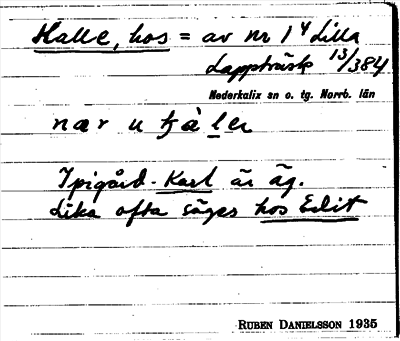 Halle, hos = av nr 1⁴ Lilla
Lappträsk 13/384
Nederkalix sn o. tg. Norrb. län
Ipigård-Karl är äg.
Lika ofta säges hos Edit
RUBEN DANIELSSON 1935